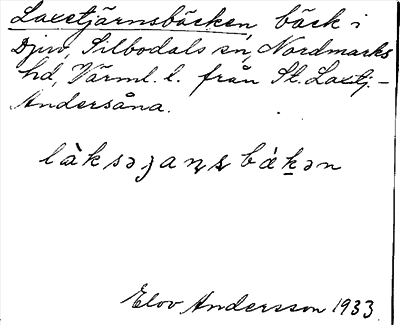 Laxetjärnsbäcken, bäck i
Djuv, Silbodals sn, Nordmarks
hd, Värml. l. från St. Laxtj. -
Andersåna.
làksəȷaṇṣbákən
Elov Andersson 1933